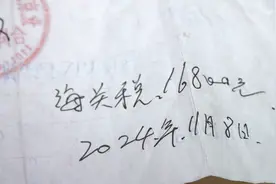 海关税:16800元
2024年.11月8日.